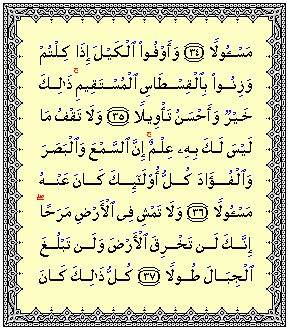 مَسْـُٔولًا ﴿٣٤﴾ وَأَوْفُوا۟ ٱلْكَيْلَ إِذَا كِلْتُمْ
وَزِنُوا۟ بِٱلْقِسْطَاسِ ٱلْمُسْتَقِيمِ ۚ ذَٰلِكَ
خَيْرٌ وَأَحْسَنُ تَأْوِيلًا ﴿٣٥﴾ وَلَا تَقْفُ مَا
لَيْسَ لَكَ بِهِۦ عِلْمٌ ۚ إِنَّ ٱلسَّمْعَ وَٱلْبَصَرَ
وَٱلْفُؤَادَ كُلُّ أُو۟لَٰٓئِكَ كَانَ عَنْهُ
مَسْـُٔولًا ﴿٣٦﴾ وَلَا تَمْشِ فِى ٱلْأَرْضِ مَرَحًا ۖ
إِنَّكَ لَن تَخْرِقَ ٱلْأَرْضَ وَلَن تَبْلُغَ
ٱلْجِبَالَ طُولًا ﴿٣٧﴾ كُلُّ ذَٰلِكَ كَانَ